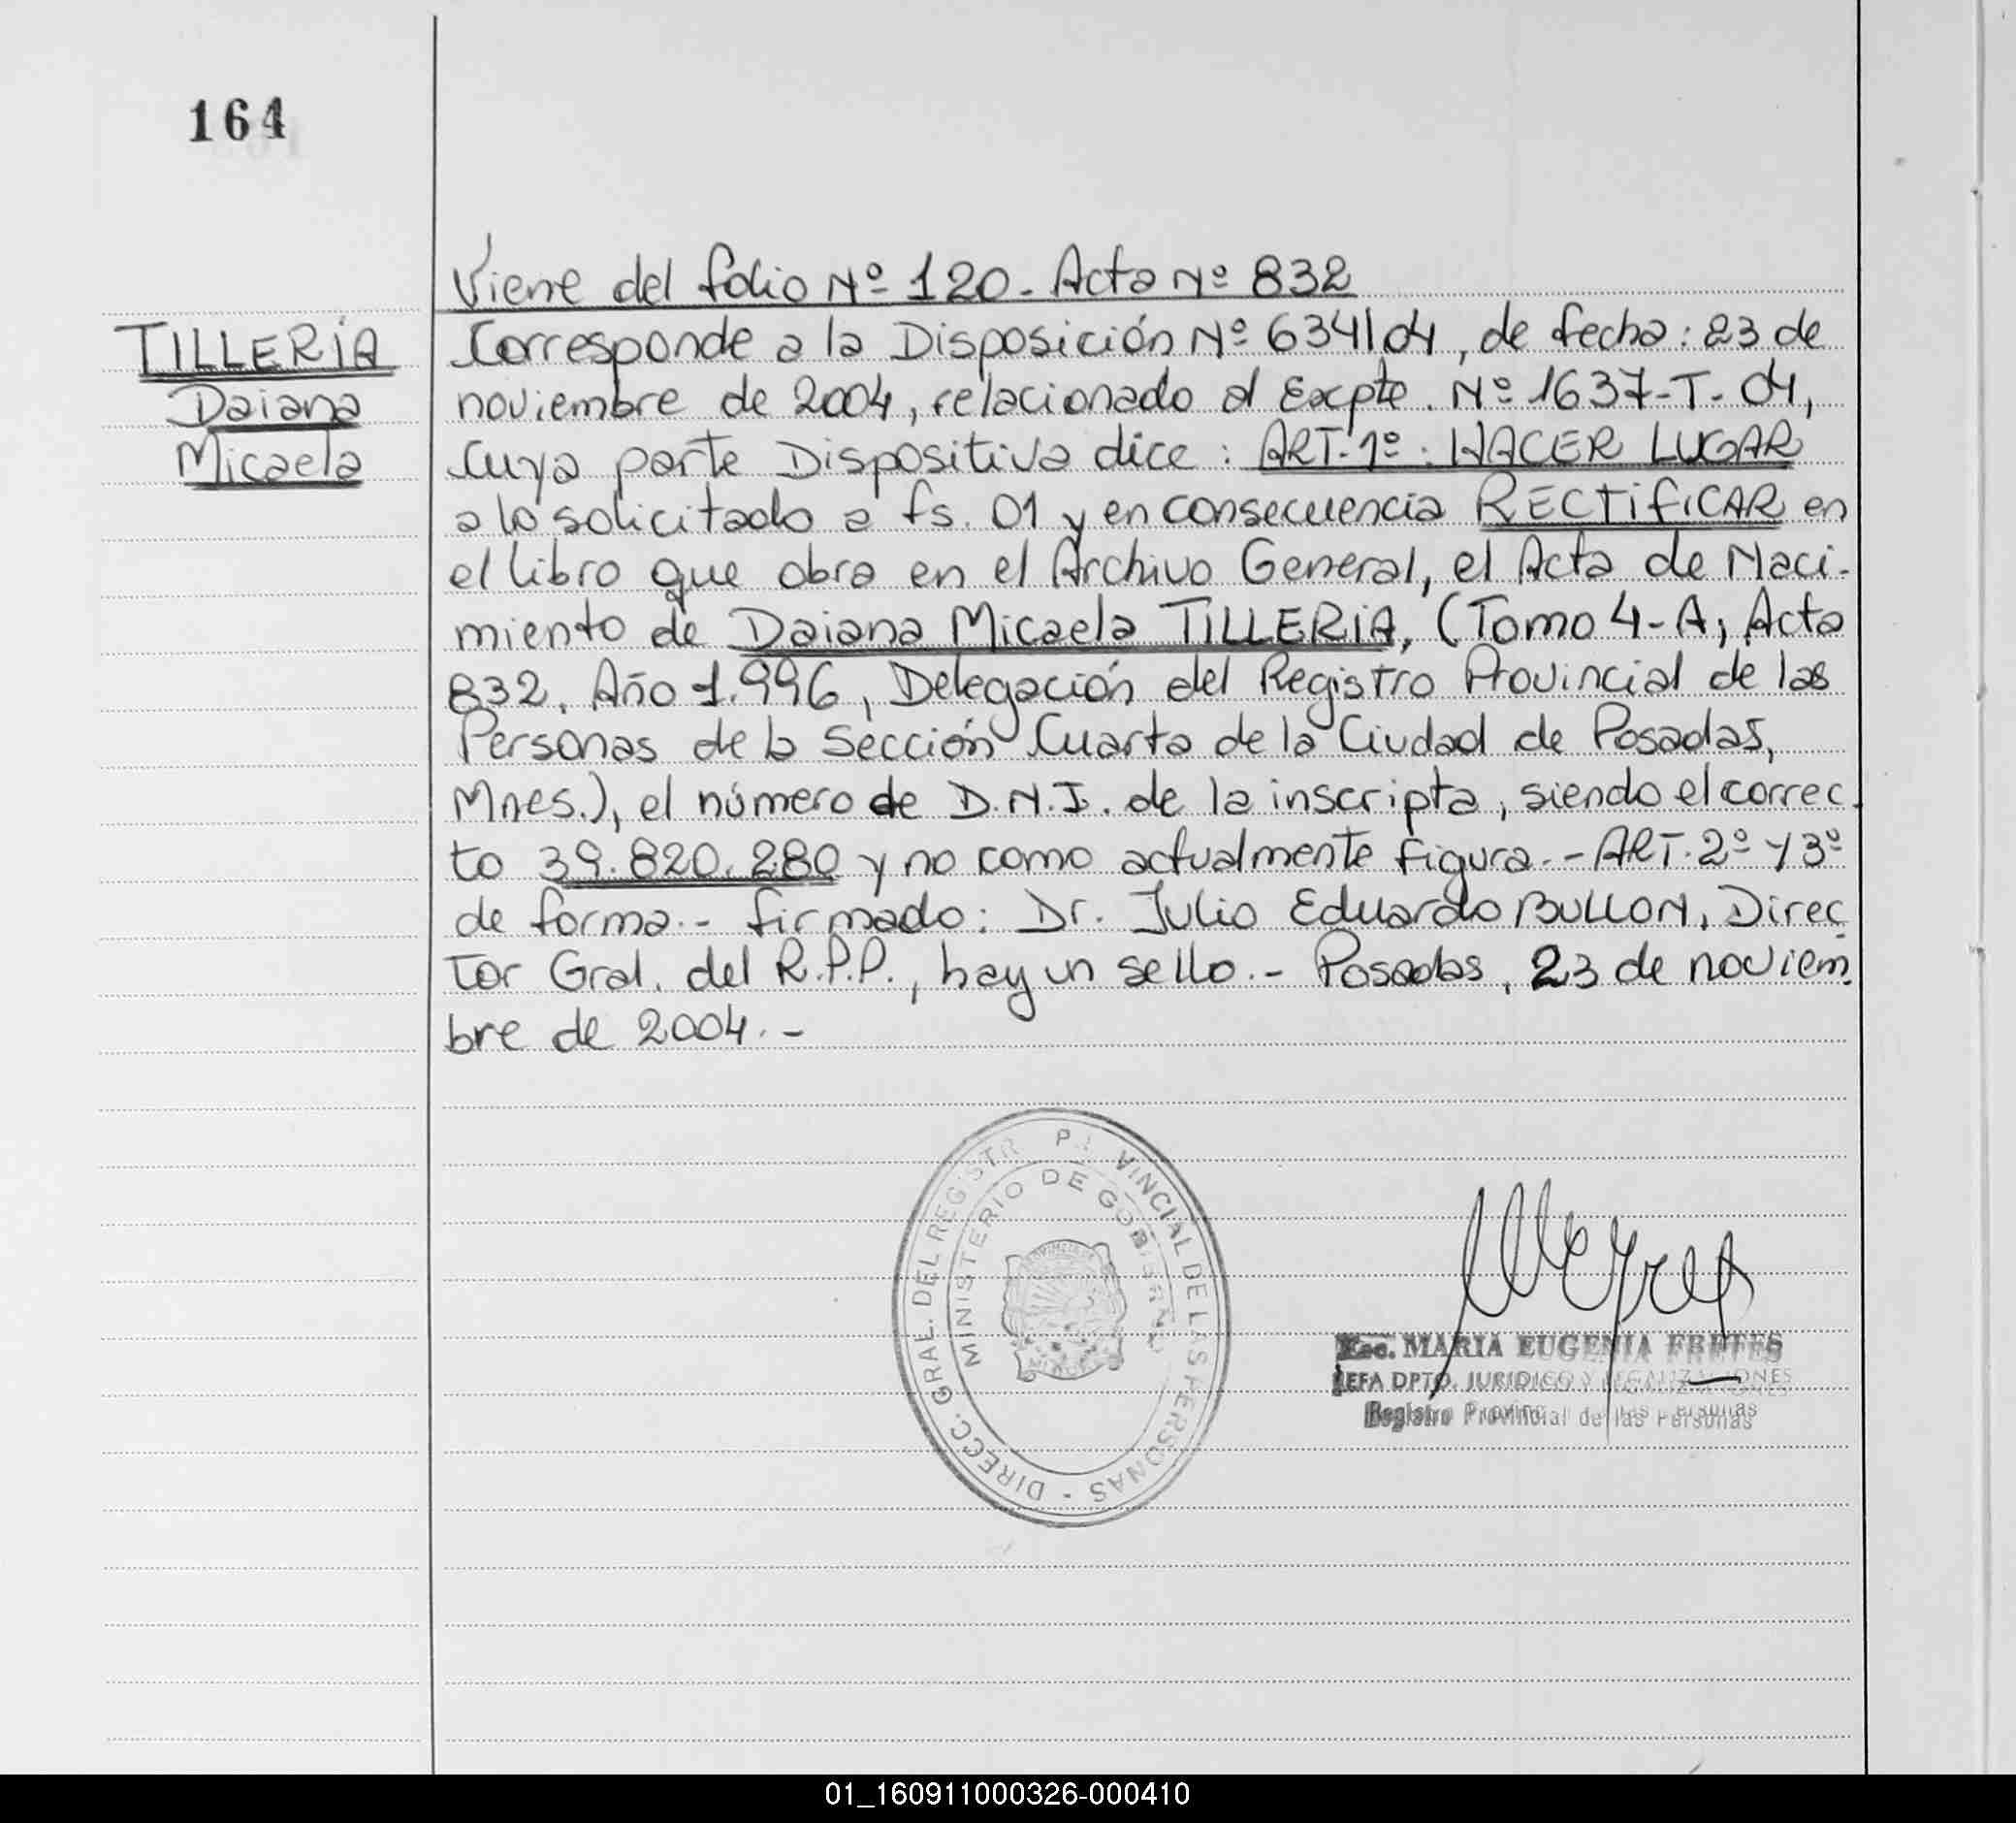 164
Viene del folio Nº 120. Acta Nº 832
TILLERIA
Daiana
Micaela
Corresponde a la Disposición Nº 634/04, de fecha: 23 de
noviembre de 2004, relacionado al Expte. Nº 1637-T-04,
cuya parte Dispositiva dice: ART. 1º: HACER LUGAR
a lo solicitado a fs. 01 y en consecuencia RECTIFICAR en
el libro que obra en el Archivo General, el Acta de Naci-
miento de Daiana Micaela TILLERIA, (Tomo 4-A, Acta
832, Año 1.996, Delegación del Registro Provincial de las
Personas de la Sección Cuarta de la Ciudad de Posadas,
Mnes.), el número de D.N.I. de la inscripta, siendo el correc-
to 39.820.280 y no como actualmente figura.- ART. 2º y 3º
de forma.- firmado: Dr. Julio Eduardo BULLON, Direc-
tor Gral. del R.P.P., hay un sello.- Posadas, 23 de noviem-
bre de 2004.-
DIRECC. GRAL. DEL REGISTR P VINCIAL DE LAS PERSONAS -
MINISTERIO DE GOBIERNO
Esc. MARIA EUGENIA FRETES
JEFA DPTO. JURIDICO Y LEGALIZACIONES
Registro Provincial de las Personas
01_160911000326-000410